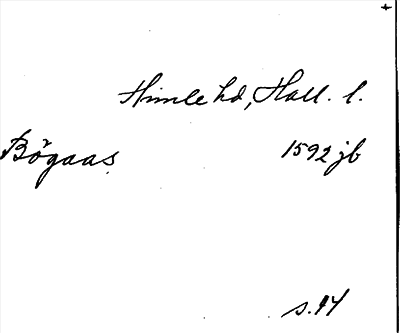 Himle hd, Hall. l.
Bögaas 1592 jb
s. 14